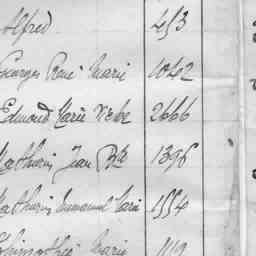 Alfred 453
Georges René Marie 1042
Edmond Marie 2666
Mathurin Jean Bte 1396
Mathurin Emmanuel Marie 1554
Marie